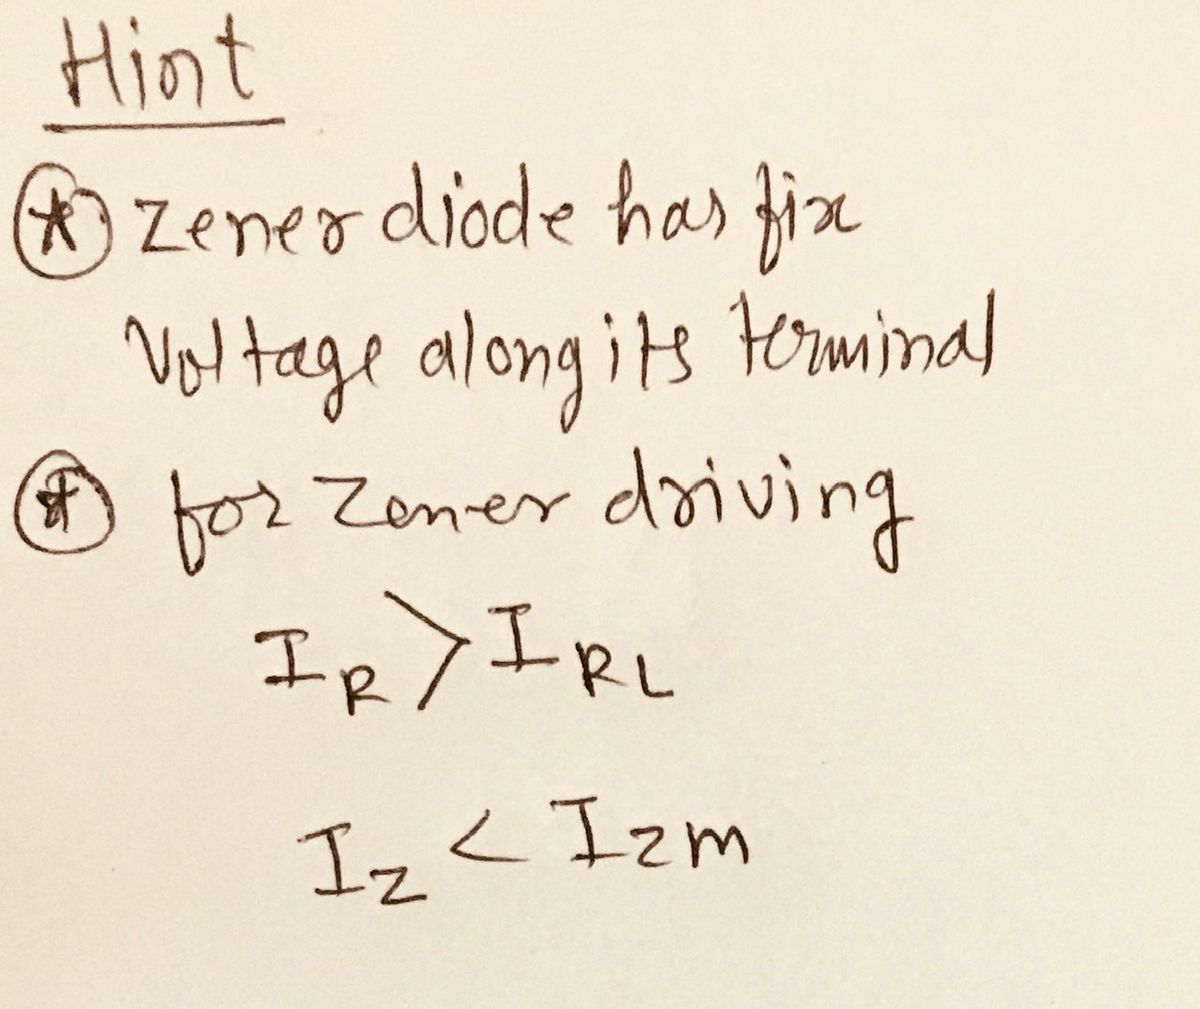 Hint
* zener diode has fix
Voltage along its terminal
* for Zener driving
I_R > I_RL
I_Z < I_ZM